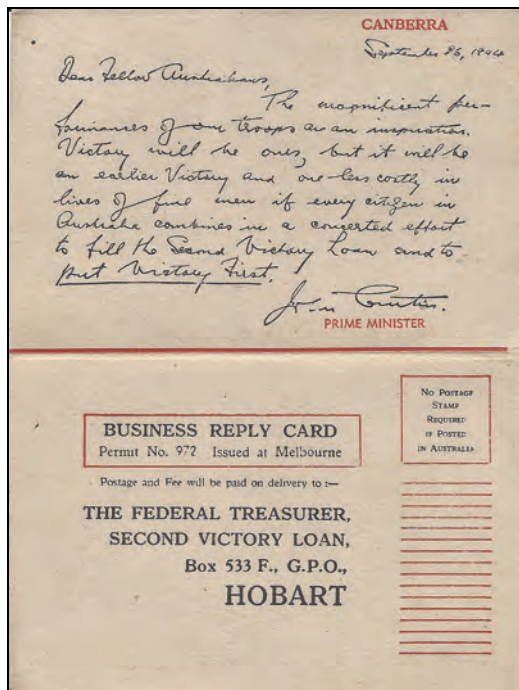 CANBERRA
September 26, 1944
Dear Fellow Australians,
The magnificent per-
formances of our troops are an inspiration.
Victory will be ours, but it will be
an earlier Victory and one less costly in
lives of fine men if every citizen in
Australia combines in a concerted effort
to fill the Second Victory Loan and to
put Victory First.
John Curtin.
PRIME MINISTER
No Postage
Stamp
Required
if Posted
in Australia
BUSINESS REPLY CARD
Permit No. 972 Issued at Melbourne
Postage and Fee will be paid on delivery to :—
THE FEDERAL TREASURER,
SECOND VICTORY LOAN,
Box 533 F., G.P.O.,
HOBART